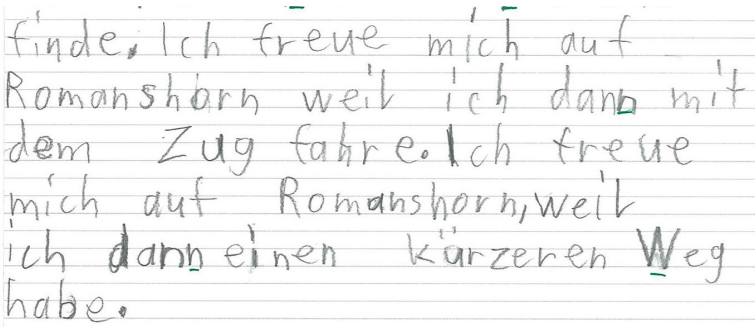 finde. Ich freue mich auf
Romanshorn weil ich dann mit
dem Zug fahre. Ich freue
mich auf Romanshorn, weil
ich dann einen kürzeren Weg
habe.